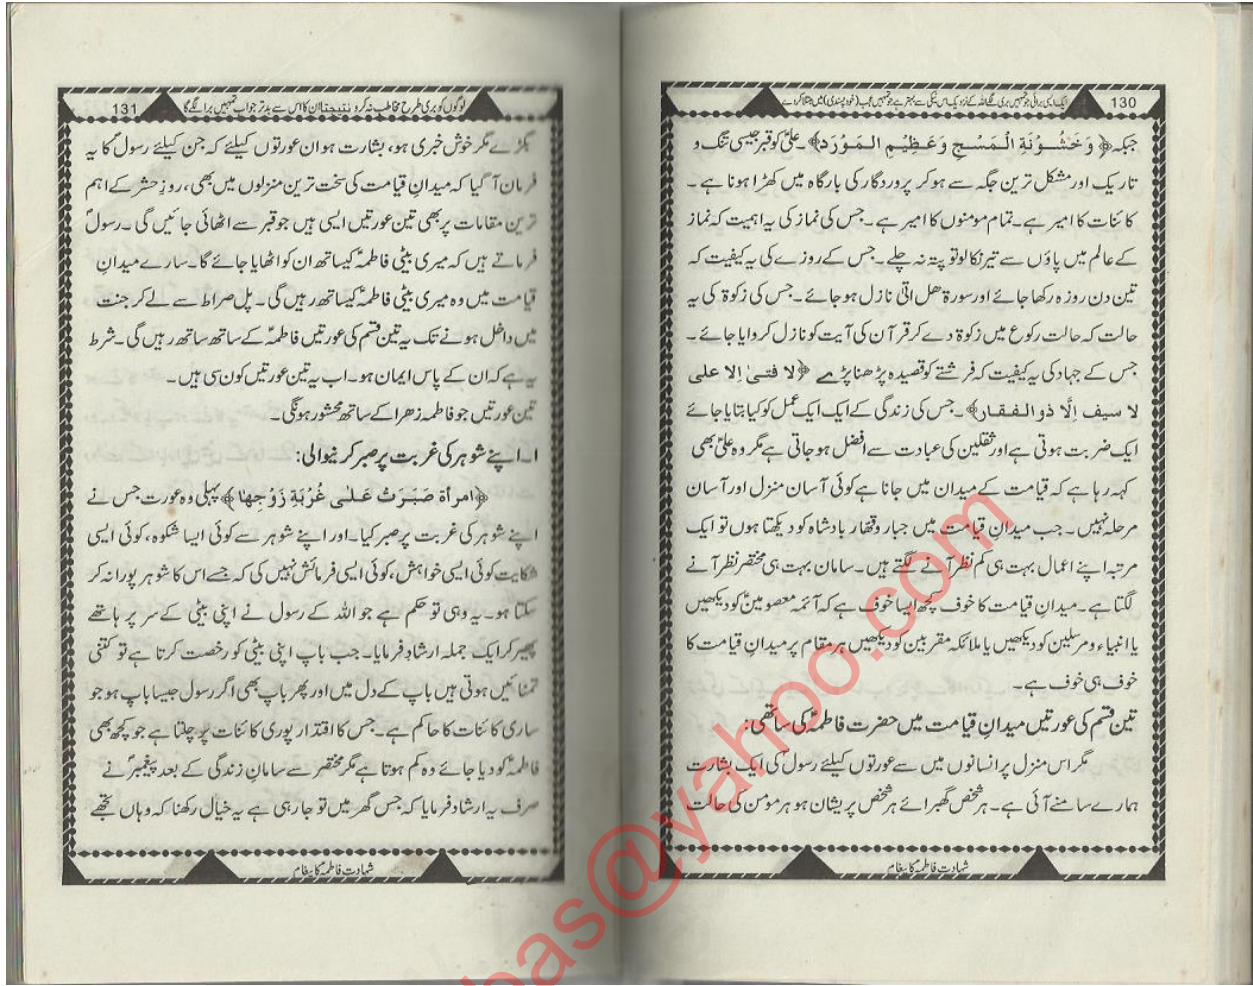 130
ایک ایسی برائی جو تمہیں بری لگے اللہ کے نزدیک اس نیکی سے بہتر ہے جو تمہیں عجب (خود پسندی) میں مبتلا کر دے
جبکہ ﴿وَ خَشُوْنَةِ الْمَسْجِ وَعَظِيْمِ الْمَوْرَد﴾۔ علیؑ کو قبر جیسی تنگ و
تاریک اور مشکل ترین جگہ سے ہو کر پروردگار کی بارگاہ میں کھڑا ہونا ہے۔
کائنات کا امیر ہے۔ تمام مومنوں کا امیر ہے۔ جس کی نماز کی یہ اہمیت کہ نماز
کے عالم میں پاؤں سے تیر نکالو تو پتہ نہ چلے۔ جس کے روزے کی یہ کیفیت کہ
تین دن روزہ رکھا جائے اور سورۃ ھل اتیٰ نازل ہو جائے۔ جس کی زکوۃ کی یہ
حالت کہ حالت رکوع میں زکوۃ دے کر قرآن کی آیت کو نازل کروایا جائے۔
جس کے جہاد کی یہ کیفیت کہ فرشتے کو قصیدہ پڑھنا پڑے ﴿لا فتیٰ اِلا علی
لا سیف اِلَّا ذو الفقار﴾۔ جس کی زندگی کے ایک ایک عمل کو کیا بتایا جائے
ایک ضربت ہوتی ہے اور ثقلین کی عبادت سے افضل ہو جاتی ہے مگر وہ علیؑ بھی
کہہ رہا ہے کہ قیامت کے میدان میں جانا ہے کوئی آسان منزل اور آسان
مرحلہ نہیں۔ جب میدانِ قیامت میں جبار و قھار بادشاہ کو دیکھتا ہوں تو ایک
مرتبہ اپنے اعمال بہت ہی کم نظر آنے لگتے ہیں۔ سامان بہت ہی مختصر نظر آنے
لگتا ہے۔ میدانِ قیامت کا خوف کچھ ایسا خوف ہے کہ آئمہ معصومینؑ کو دیکھیں
یا انبیاء و مرسلین کو دیکھیں یا ملائکہ مقربین کو دیکھیں ہر مقام پر میدانِ قیامت کا
خوف ہی خوف ہے۔
تین قسم کی عورتیں میدانِ قیامت میں حضرت فاطمہؑ کی ساتھی:
مگر اس منزل پر انسانوں میں سے عورتوں کیلئے رسولؐ کی ایک بشارت
ہمارے سامنے آئی ہے۔ ہر شخص گھبرائے ہر شخص پریشان ہو ہر مومن کی حالت
شہادت فاطمہؑ کا پیغام
131
لوگوں کو بری طرح مخاطب نہ کرو نتیجتاً ان کا اس سے بدتر جواب تمہیں برا لگے گا
بگڑے مگر خوش خبری ہو، بشارت ہو ان عورتوں کیلئے کہ جن کیلئے رسولؐ کا یہ
فرمان آ گیا کہ میدانِ قیامت کی سخت ترین منزلوں میں بھی، روزِ حشر کے اہم
ترین مقامات پر بھی تین عورتیں ایسی ہیں جو قبر سے اٹھائی جائیں گی۔ رسولؐ
فرماتے ہیں کہ میری بیٹی فاطمہؑ کیساتھ ان کو اٹھایا جائے گا۔ سارے میدانِ
قیامت میں وہ میری بیٹی فاطمہؑ کیساتھ رہیں گی۔ پل صراط سے لے کر جنت
میں داخل ہونے تک یہ تین قسم کی عورتیں فاطمہؑ کے ساتھ ساتھ رہیں گی۔ شرط
یہ ہے کہ ان کے پاس ایمان ہو۔ اب یہ تین عورتیں کون سی ہیں۔
تین عورتیں جو فاطمہ زھرا کے ساتھ محشور ہونگی۔
ا۔ اپنے شوہر کی غربت پر صبر کرنیوالی:
﴿امرأة صَبَرَتْ عَلٰی غُرْبَةِ زَوْجِهَا﴾ پہلی وہ عورت جس نے
اپنے شوہر کی غربت پر صبر کیا۔ اور اپنے شوہر سے کوئی ایسا شکوہ، کوئی ایسی
شکایت کوئی ایسی خواہش، کوئی ایسی فرمائش نہیں کی کہ جسے اس کا شوہر پورا نہ کر
سکتا ہو۔ یہ وہی تو حکم ہے جو اللہ کے رسول نے اپنی بیٹی کے سر پر ہاتھ
پھیر کر ایک جملہ ارشاد فرمایا۔ جب باپ اپنی بیٹی کو رخصت کرتا ہے تو کتنی
تمنائیں ہوتی ہیں باپ کے دل میں اور پھر باپ بھی اگر رسول جیسا باپ ہو جو
ساری کائنات کا حاکم ہے۔ جس کا اقتدار پوری کائنات پر چلتا ہے جو کچھ بھی
فاطمہؑ کو دیا جائے وہ کم ہوتا ہے مگر مختصر سے سامانِ زندگی کے بعد پیغمبرؐ نے
صرف یہ ارشاد فرمایا کہ جس گھر میں تو جا رہی ہے یہ خیال رکھنا کہ وہاں تجھے
شہادت فاطمہؑ کا پیغام
bas@yahoo.com